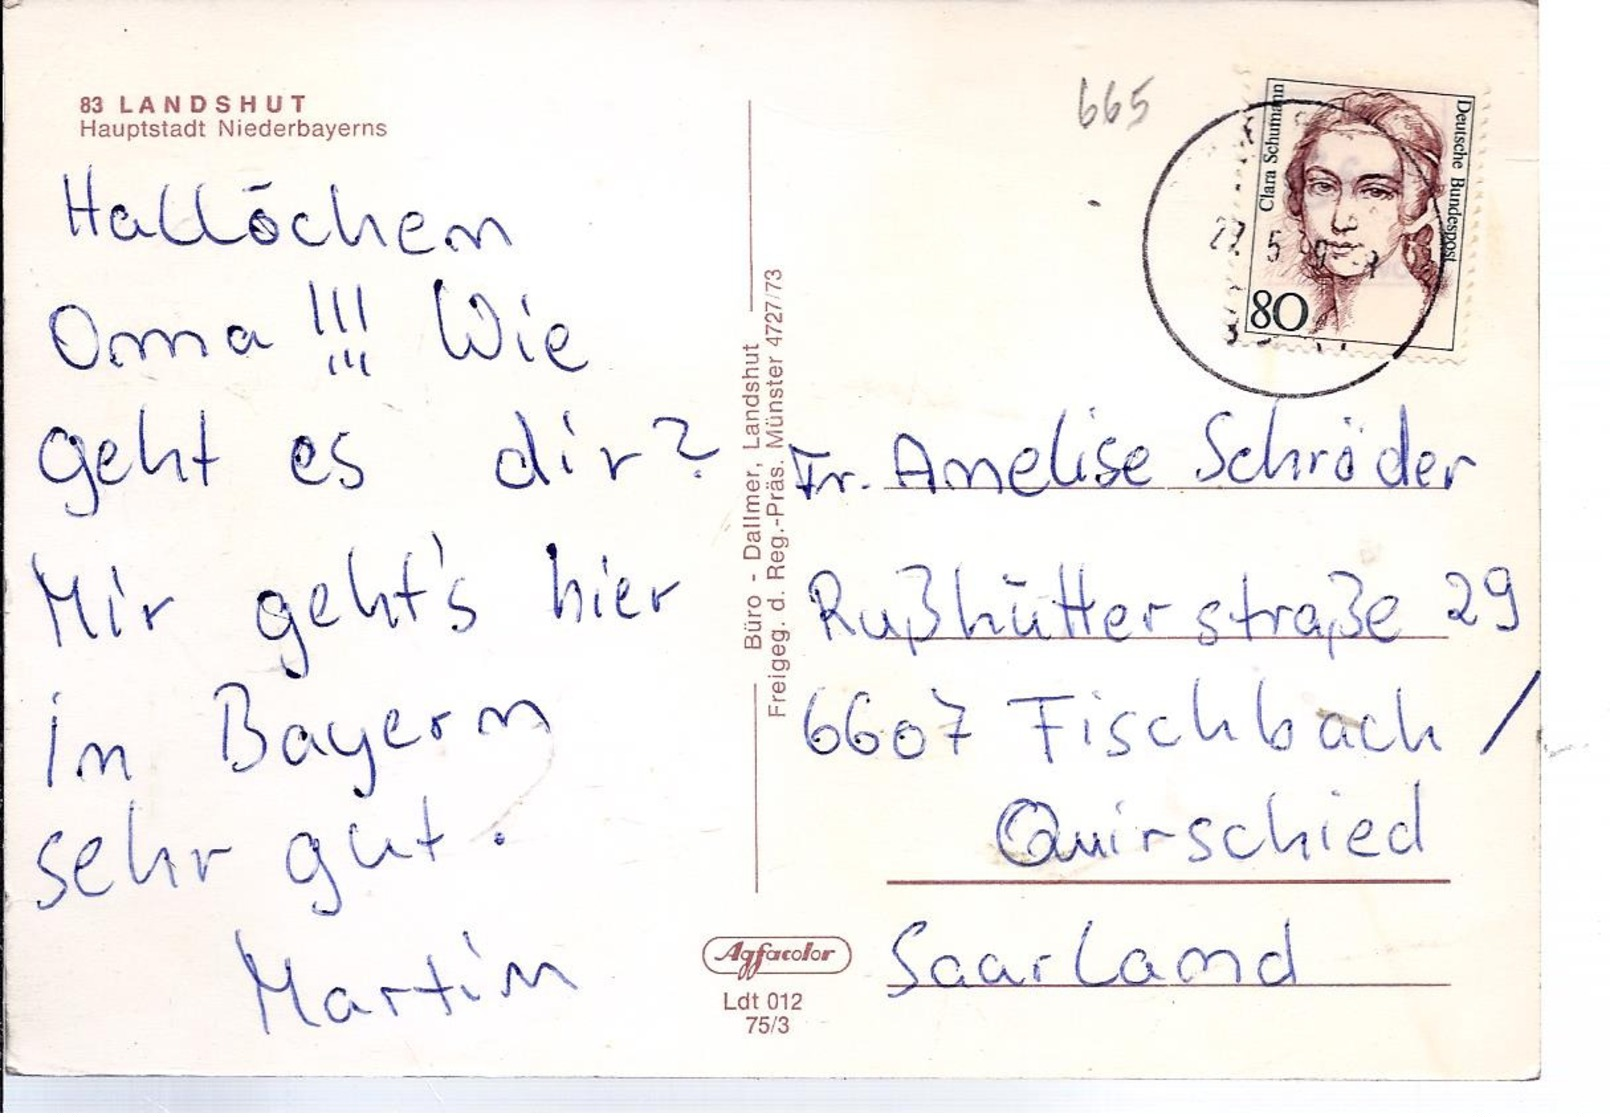 83 LANDSHUT
Hauptstadt Niederbayerns
Hallöchen
Oma !!! Wie
geht es dir?
Mir geht's hier
in Bayern
sehr gut.
Martin
Büro - Dallmer, Landshut
Freigeg. d. Reg.-Präs. Münster 4727/73
Agfacolor
Ldt 012
75/3
665
Clara Schumann
Deutsche Bundespost
80
Fr. Annelise Schröder
Rußhütterstraße 29
6607 Fischbach /
Quirschied
Saarland